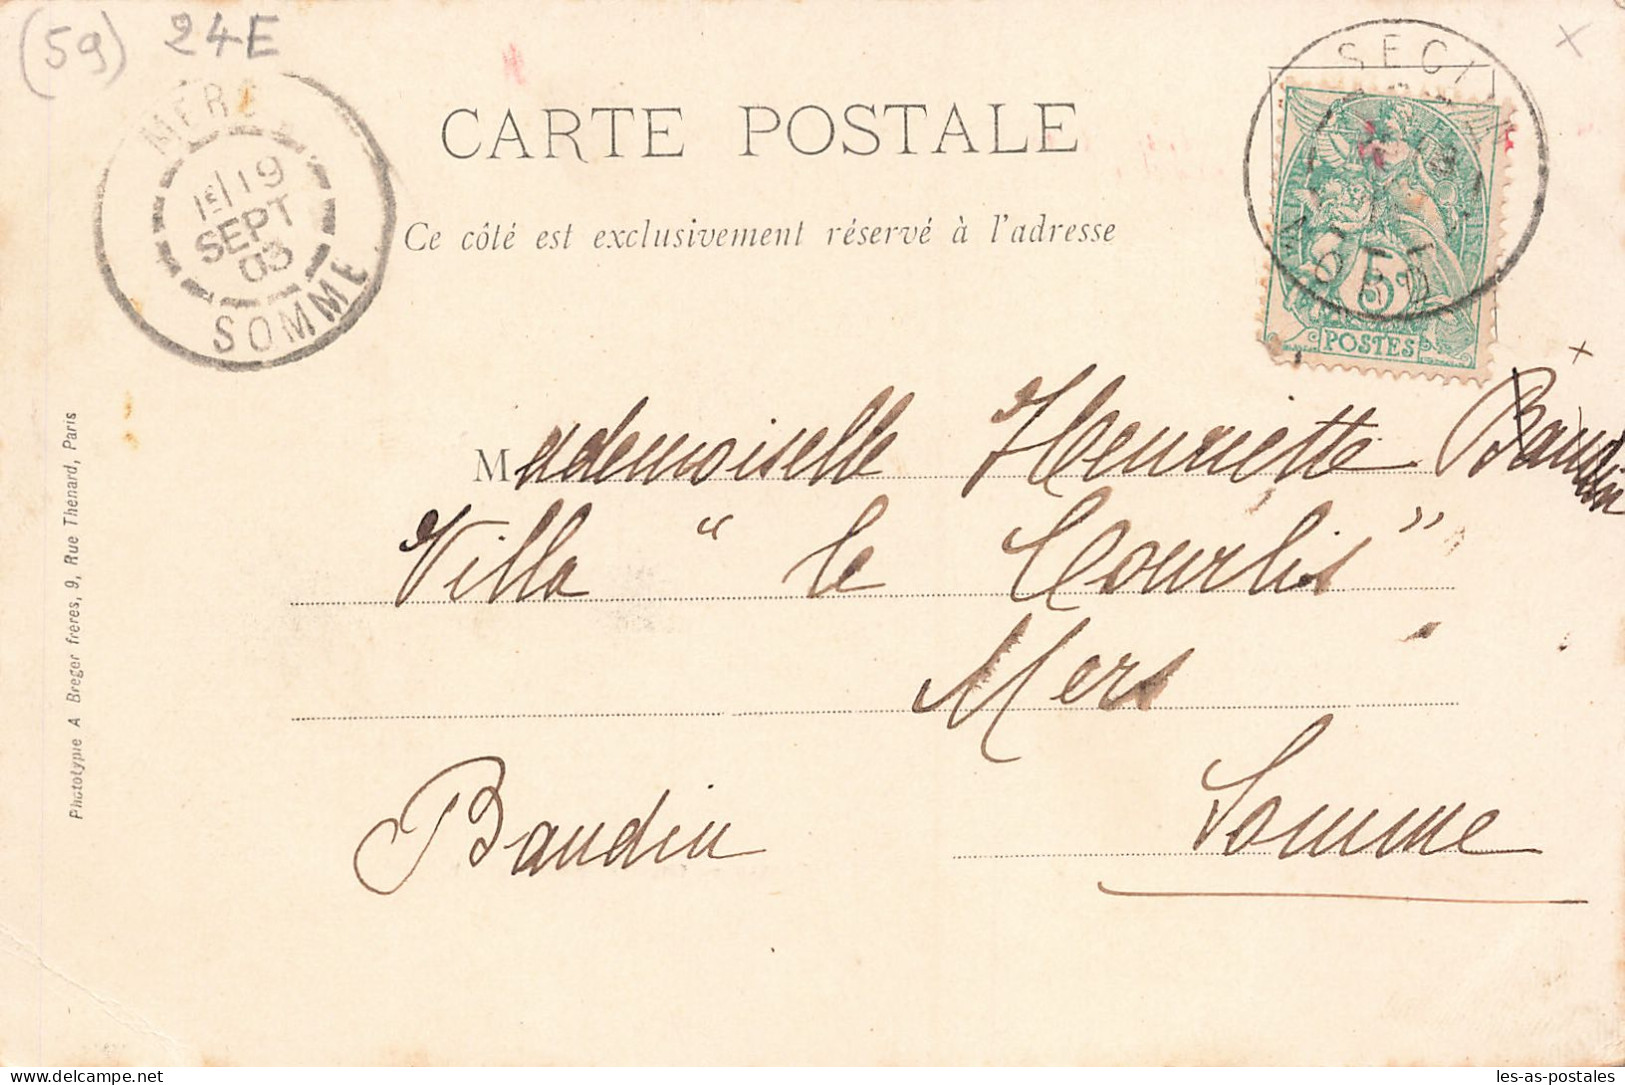 (59) 24E
MERS
19
SEPT
03
SOMME
CARTE POSTALE
Ce côté est exclusivement réservé à l'adresse
5
POSTES
Mademoiselle Henriette Baudin
Villa “ le Courlis ”
Mers
Somme
Baudin
Phototypie A Breger frères, 9, Rue Thenard, Paris
les-as-postales